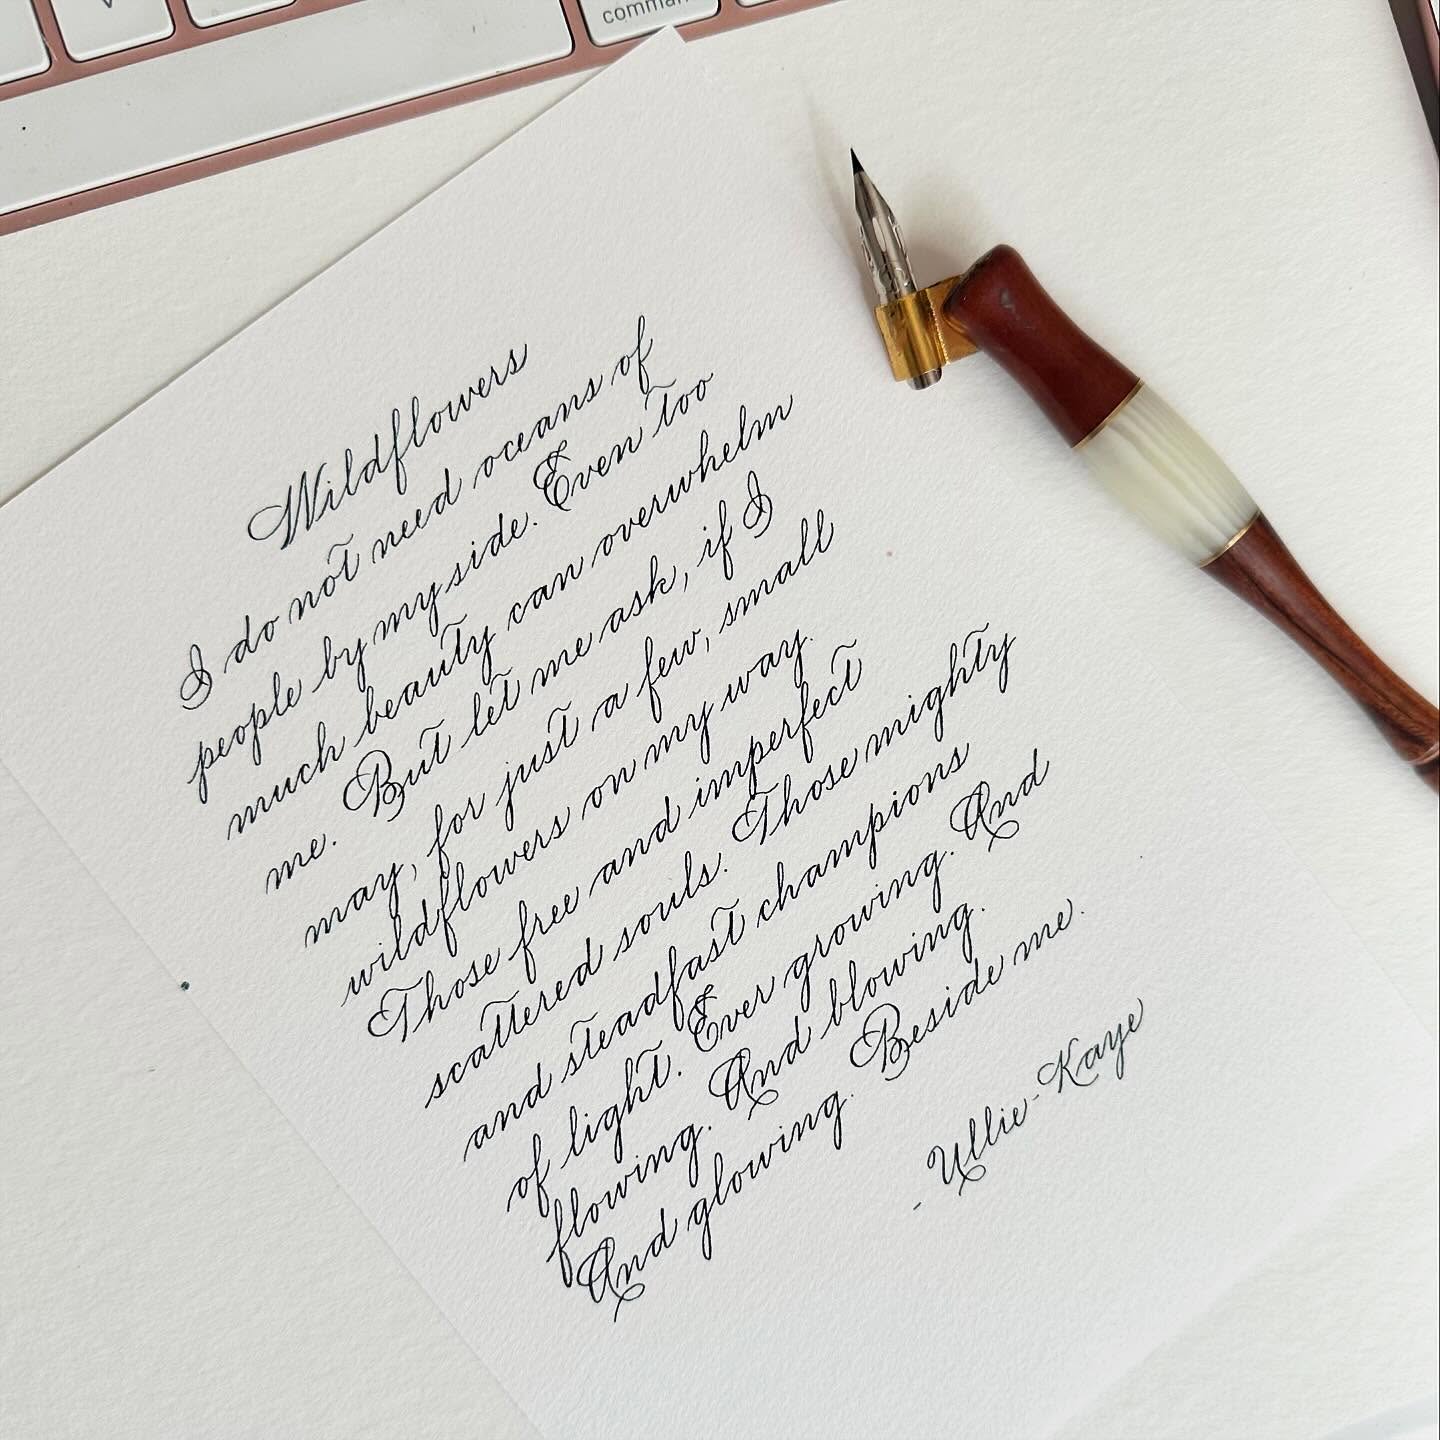 command
Wildflowers
I do not need oceans of
people by my side. Even too
much beauty can overwhelm
me. But let me ask, if I
may, for just a few, small
wildflowers on my way.
Those free and imperfect
scattered souls. Those mighty
and steadfast champions
of light. Ever growing. And
flowing. And blowing.
And glowing. Beside me.
- Ullie-Kaye